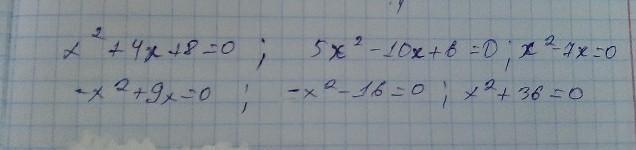 x² + 4x + 8 = 0 ; 5x² - 10x + 6 = 0 ; x² - 7x = 0
-x² + 9x = 0 ; -x² - 16 = 0 ; x² + 36 = 0